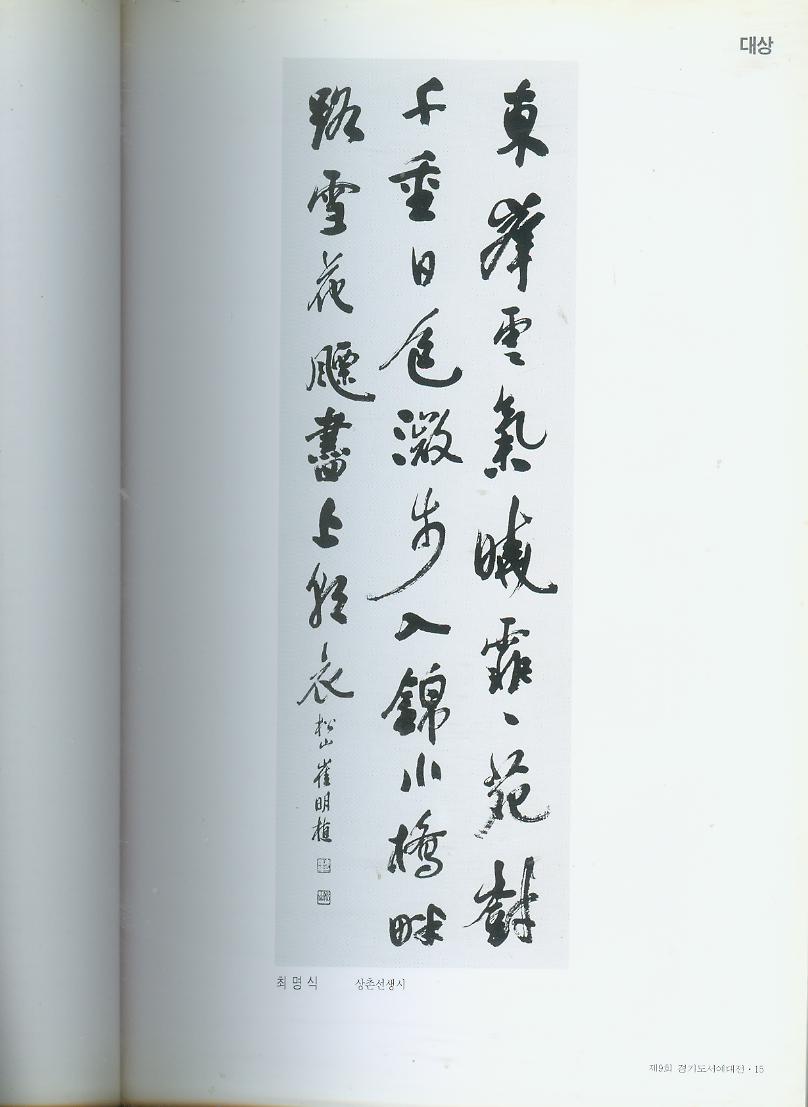 대상
東峯雲氣曉霏〻苑樹
千重日色微步入錦川橋畔
路雪花飄盡上朝衣 松山 崔明植
최명식 상촌선생시
제9회 경기도서예대전 · 15